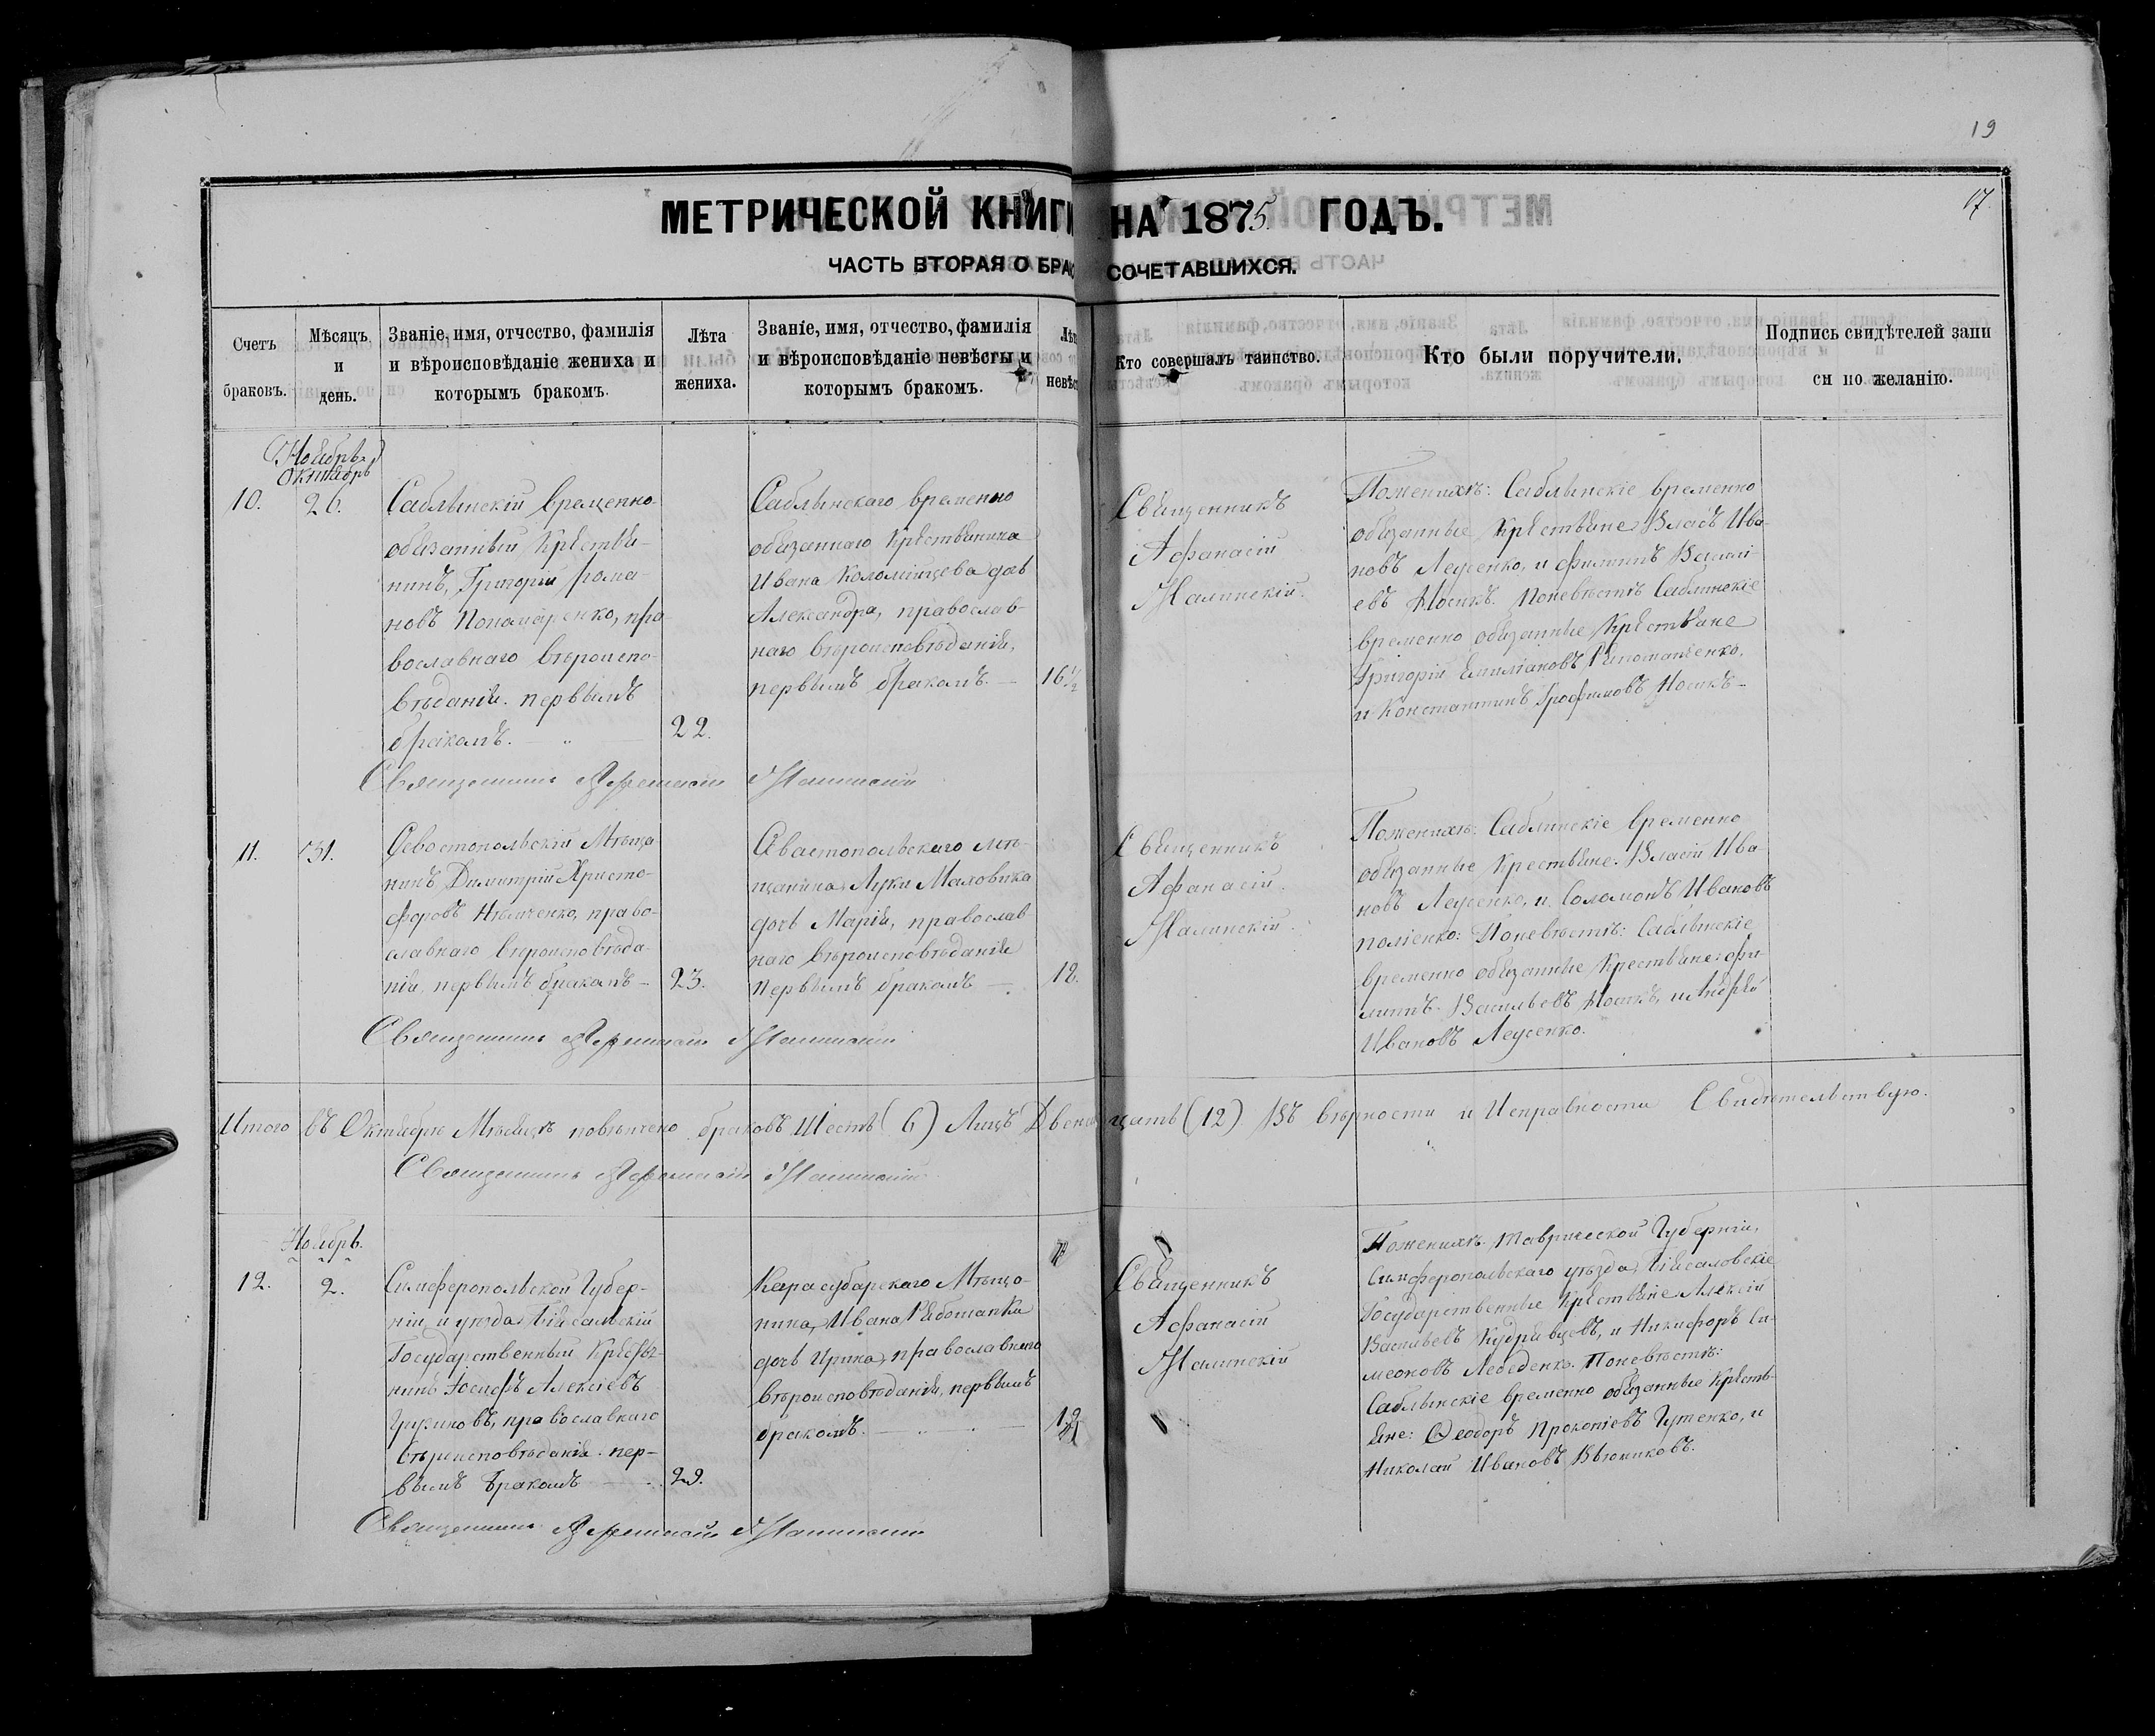 19
17.
МЕТРИЧЕСКОЙ КНИГИ НА 1875 ГОДЪ.
ЧАСТЬ ВТОРАЯ О БРАКОСОЧЕТАВШИХСЯ.
Счетъ браковъ.
Мѣсяцъ и день.
Званіе, имя, отчество, фамилія
и вѣроисповѣданіе жениха и
которымъ бракомъ.
Лѣта
жениха.
Званіе, имя, отчество, фамилія
и вѣроисповѣданіе невѣсты и
которымъ бракомъ.
Лѣт
невѣс
Кто совершалъ таинство.
Кто были поручители.
Подпись свидѣтелей запи
си по желанію.
(Ноябрь)
Октябрь
10.
26.
Саблынскій временно
обязанный Крестья-
нинъ, Григорій Рома-
новъ Пономаренко, пра
вославнаго вѣроиспо-
вѣданія. первымъ
бракомъ.
22.
Саблынскаго временно
обязаннаго Крестьянина
Ивана Коломійцева дочь
Александра, православ-
наго вѣроисповѣданія,
первымъ бракомъ. —
16 1/2
Священникъ
Афанасій
Налинскій.
Поженихѣ: Саблынскіе временно
обязанные Крестьяне Власъ Ива-
новъ Леусенко, и Филиппъ Васили-
евъ Носикъ. Поневѣстѣ Саблинскіе
временно обязанные Крестьяне
Григорій Емиліановъ
и Константинъ Трофимовъ Носикъ —
Священникъ Афанасій Налинскій
11.
31.
Севостопольскій Мѣща-
нинъ Димитрій Христо-
форовъ Нѣмченко, право-
славнаго вѣроисповѣда-
нія, первымъ бракомъ —
23.
Севастопольскаго мѣ-
щанина Луки Маховика
дочь Марія, православ
наго вѣроисповѣданія
первымъ бракомъ —
18.
Священникъ
Афанасій
Налинскій.
Поженихѣ: Саблинскіе временно
обязанные Крестьяне. Власій Ива-
новъ Леусенко, и Соломонъ Ивановъ
Поневѣстѣ: Саблынскіе
временно обязанные Крестьяне: Фи-
липпъ Васильевъ Носикъ, и Андрей
Ивановъ Леусенко.
Священникъ Афанасій Налинскій
Итого въ Октябрѣ Мѣсяцѣ повѣнчено браковъ Шесть (6) Лицъ Двенадцать (12) Въ вѣрности и Исправности Свидѣтельствую.
Священникъ Афанасій Налинскій
Ноябрь.
12.
2.
Симферопольской Губер-
ніи и уѣзда
Государственный Крестья-
нинъ Іосифъ Алексіевъ
православнаго
вѣроисповѣданія. пер-
вымъ бракомъ
29.
Карасубарскаго Мѣща-
нина, Ивана
дочь Ирина, православнаго
вѣроисповѣданія, первымъ
бракомъ.
Священникъ
Афанасій
Налинскій
Поженихѣ. Таврической Губерніи,
Симферопольскаго уѣзда,
Государственные Крестьяне Алексій
Васильевъ Кудрявцевъ, и Никифоръ Си-
меоновъ Лебеденко. Поневѣстѣ:
Саблынскіе временно обязанные Кресть-
яне: Ѳеодоръ Прокопіевъ Гутенко, и
Николай Ивановъ Вьюниковъ.
Священникъ Афанасій Налинскій